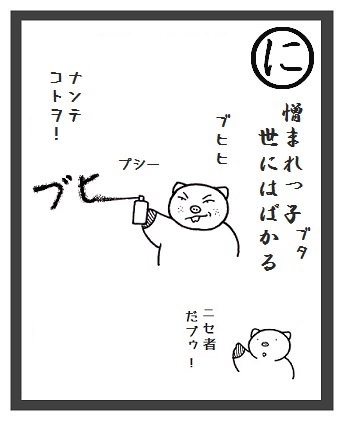 に
憎まれっ子
ブタ
世にはばかる
ブヒヒ
ナンテ
コトヲ!
プシー
ブヒ
ニセ者
だブゥ!